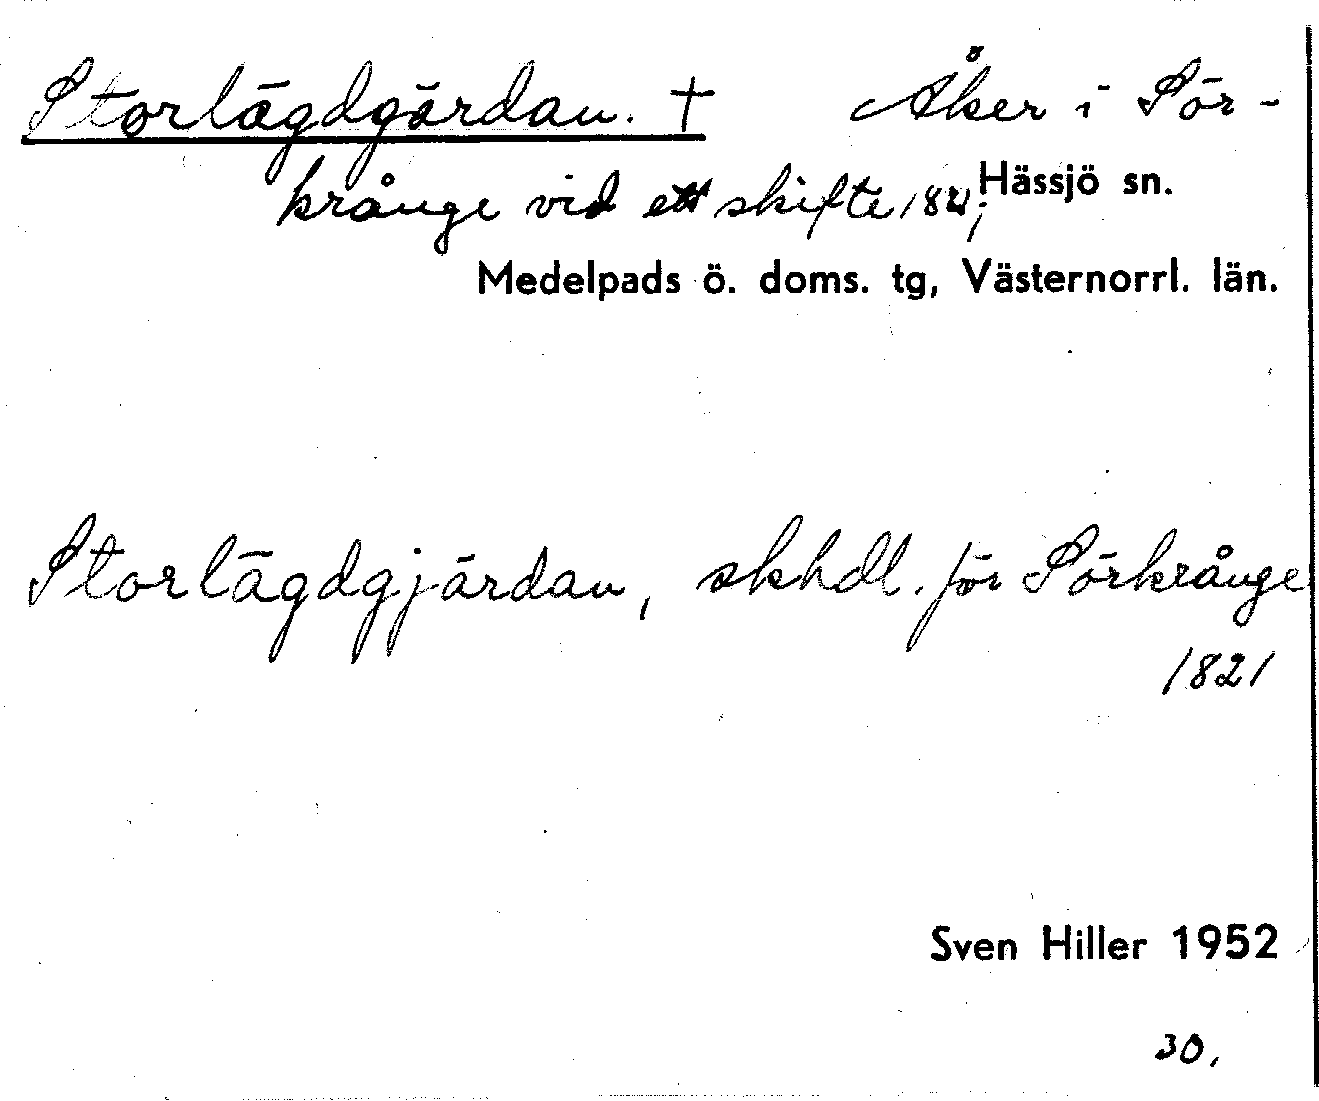 Storlägdgärdan. † Åker i Sör-
krånge vid ett skifte 1821, Hässjö sn.
Medelpads ö. doms. tg, Västernorrl. län.
Storlägdgjärdan, skhdl. för Sörkrånge
1821
Sven Hiller 1952
30.